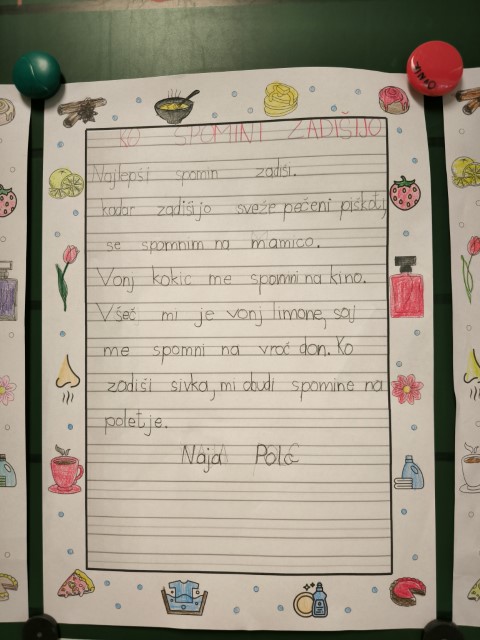 KO SPOMINI ZADIŠIJO
Najlepši spomin zadiši.
kadar zadišijo sveže pečeni piškoti
se spomnim na mamico.
Vonj kokic me spomni na kino.
Všeč mi je vonj limone, saj
me spomni na vroč don. Ko
zadiši sivka, mi obudi spomine na
poletje.
Naja